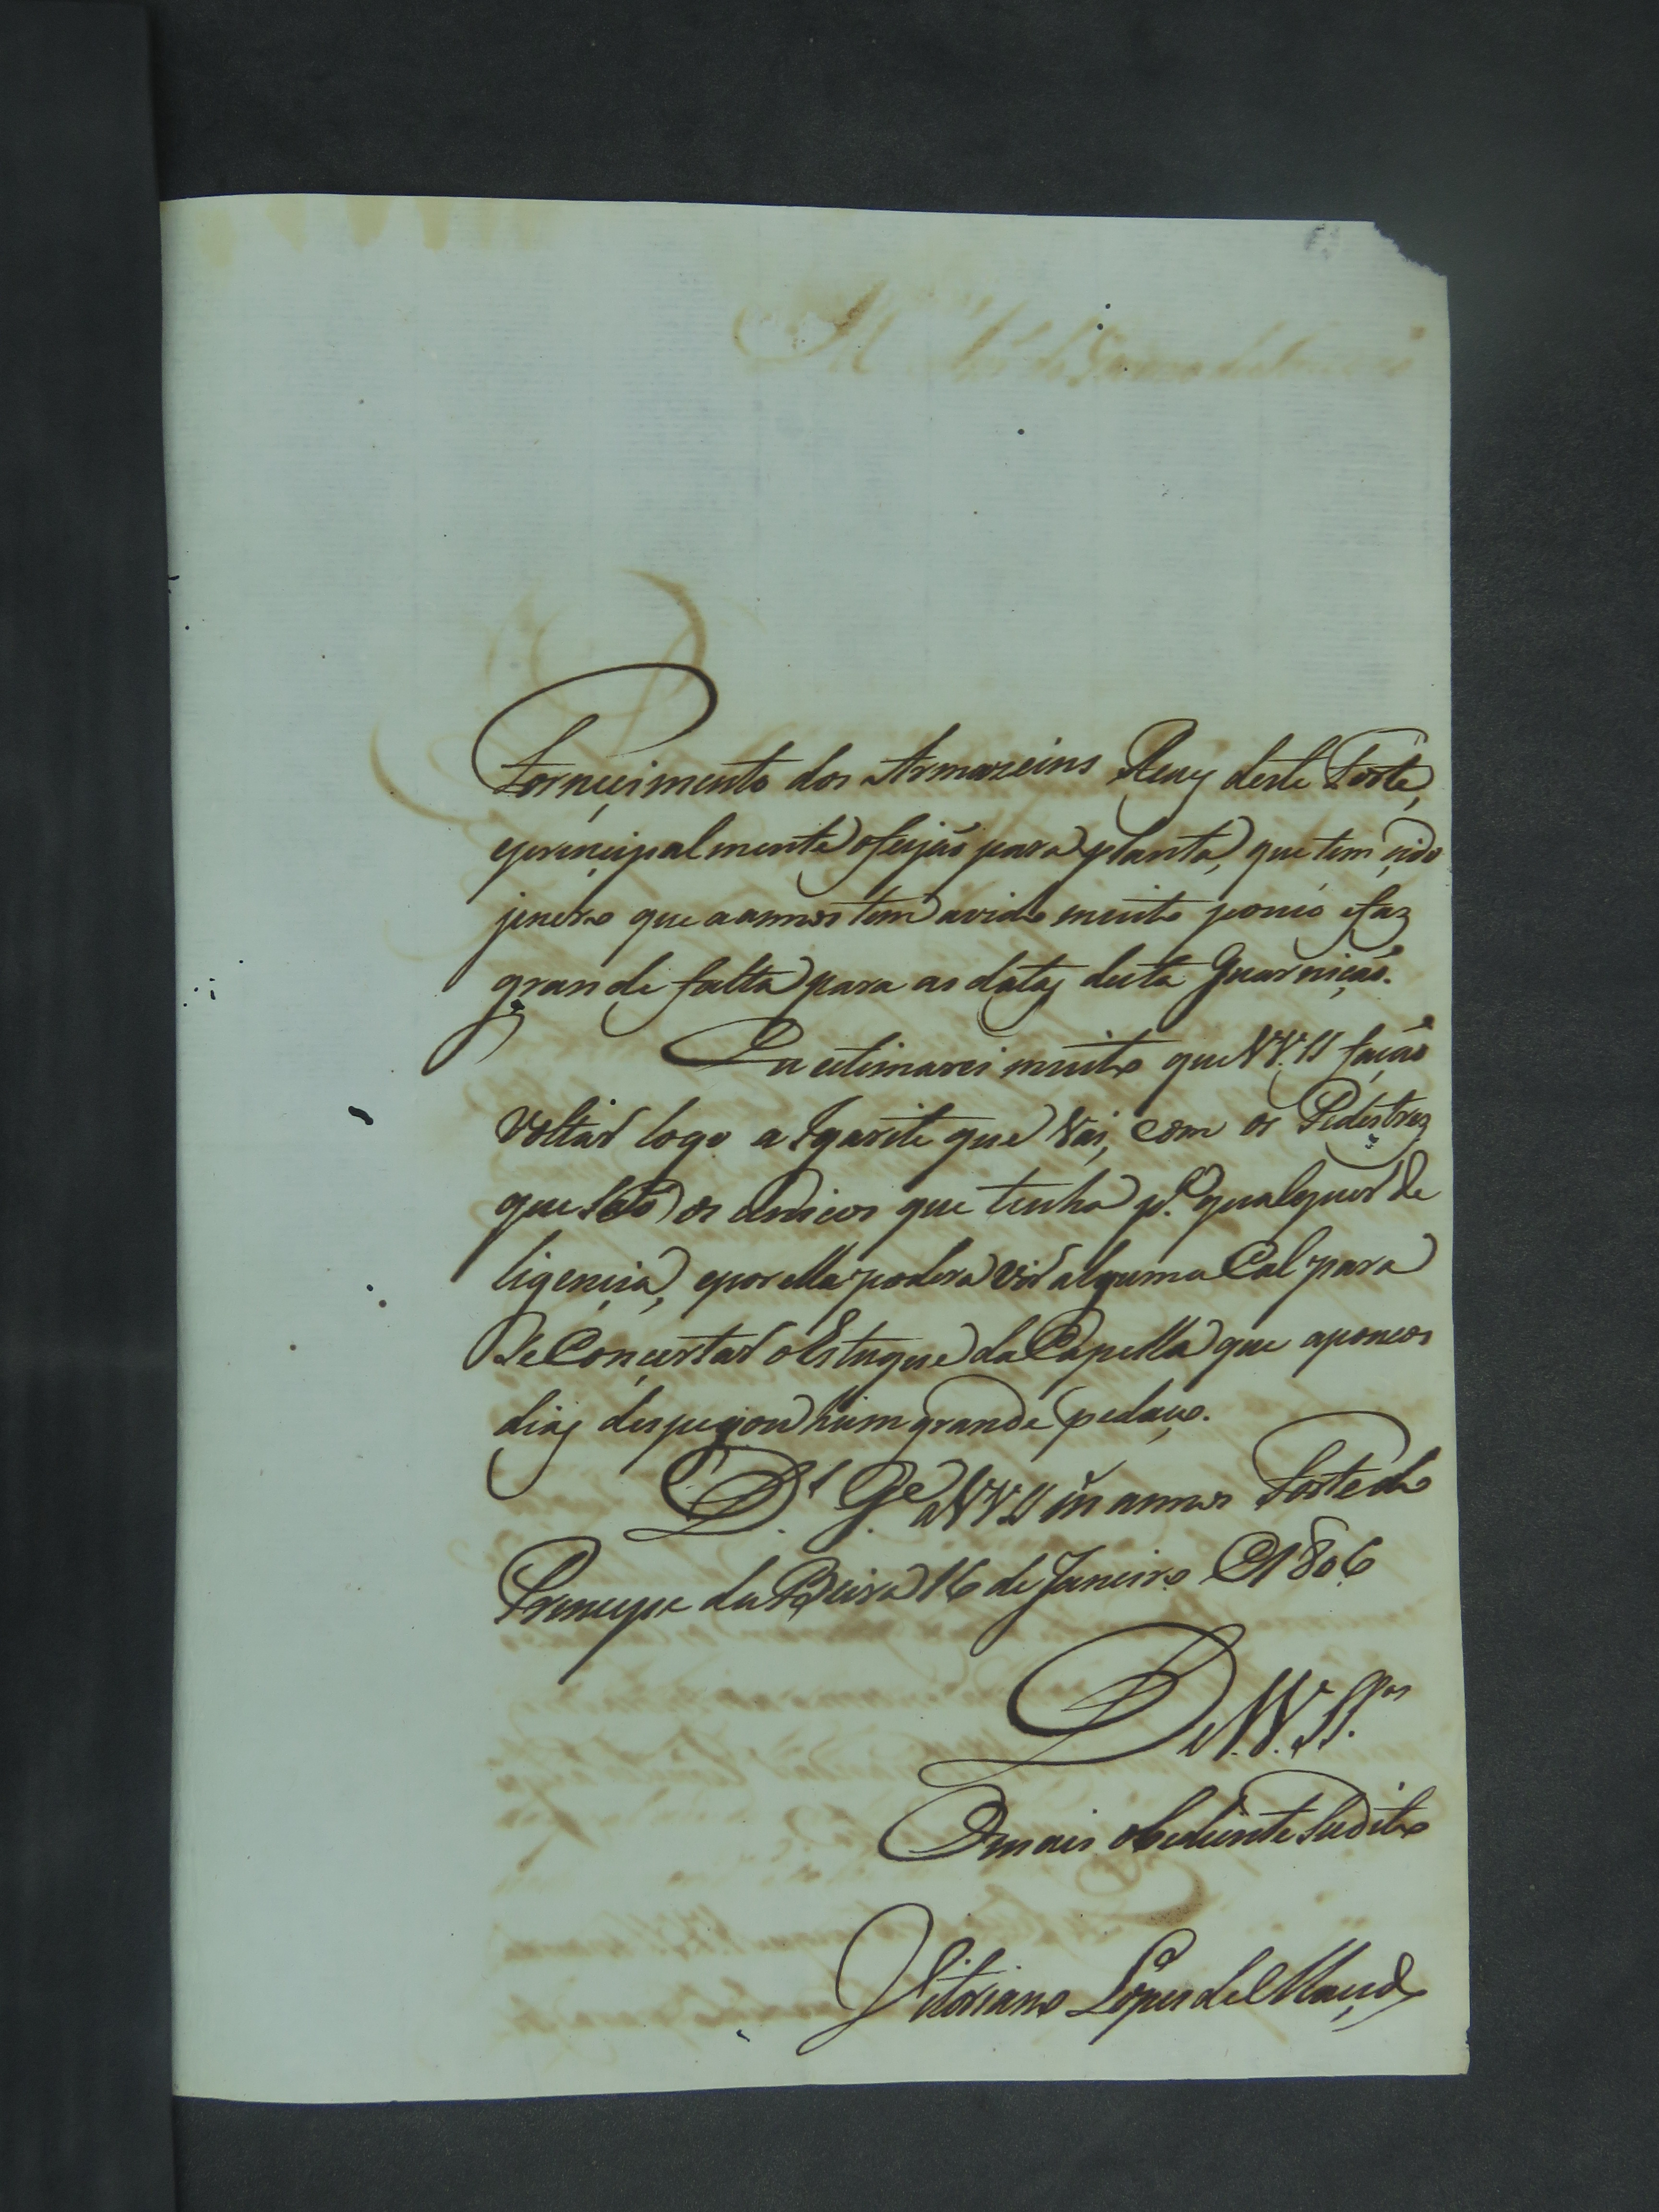 Forneçimento dos Armazeins Reay deste Forte,
eprinçipalmente ofeijaõ para planta, que tem çido
jenero que aannos tem avido muito pouco efaz
grande falta para as datas desta Guarniçaõ.
Eu estimarei muito que VV. SS façaõ
voltar logo a Igarite que vai, com os Pedestres
que saõ os unicos que tenha p.ª qualquer de
ligençia, epor ella podera vir alguma Cal para
se Conçertar oEstuque da Capella que apoucos
dias despegou hum grande pedaço.
D.s G.e aVVSS m.s annos Forte do
Principe da Beira 16 de Janeiro @ 1806
De VV. SS.as
Omais obediente Sudito
Vitoriano Lopes de Maçedo